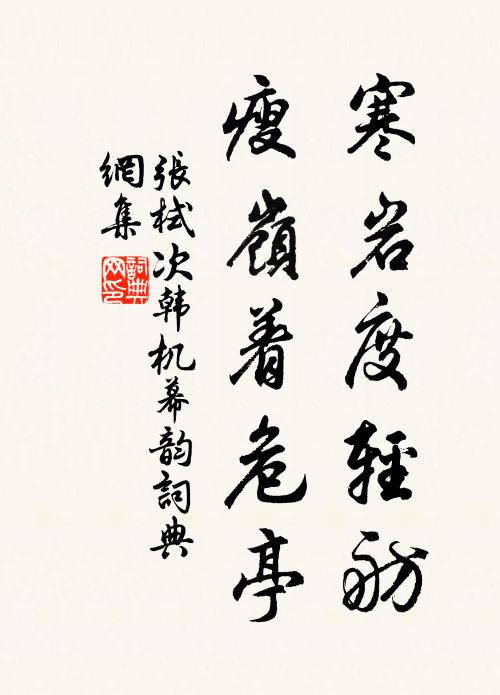 寒岩度輕舫
瘦嶺着危亭
張栻次韩机幕韵詞典
網集
詞典
网印